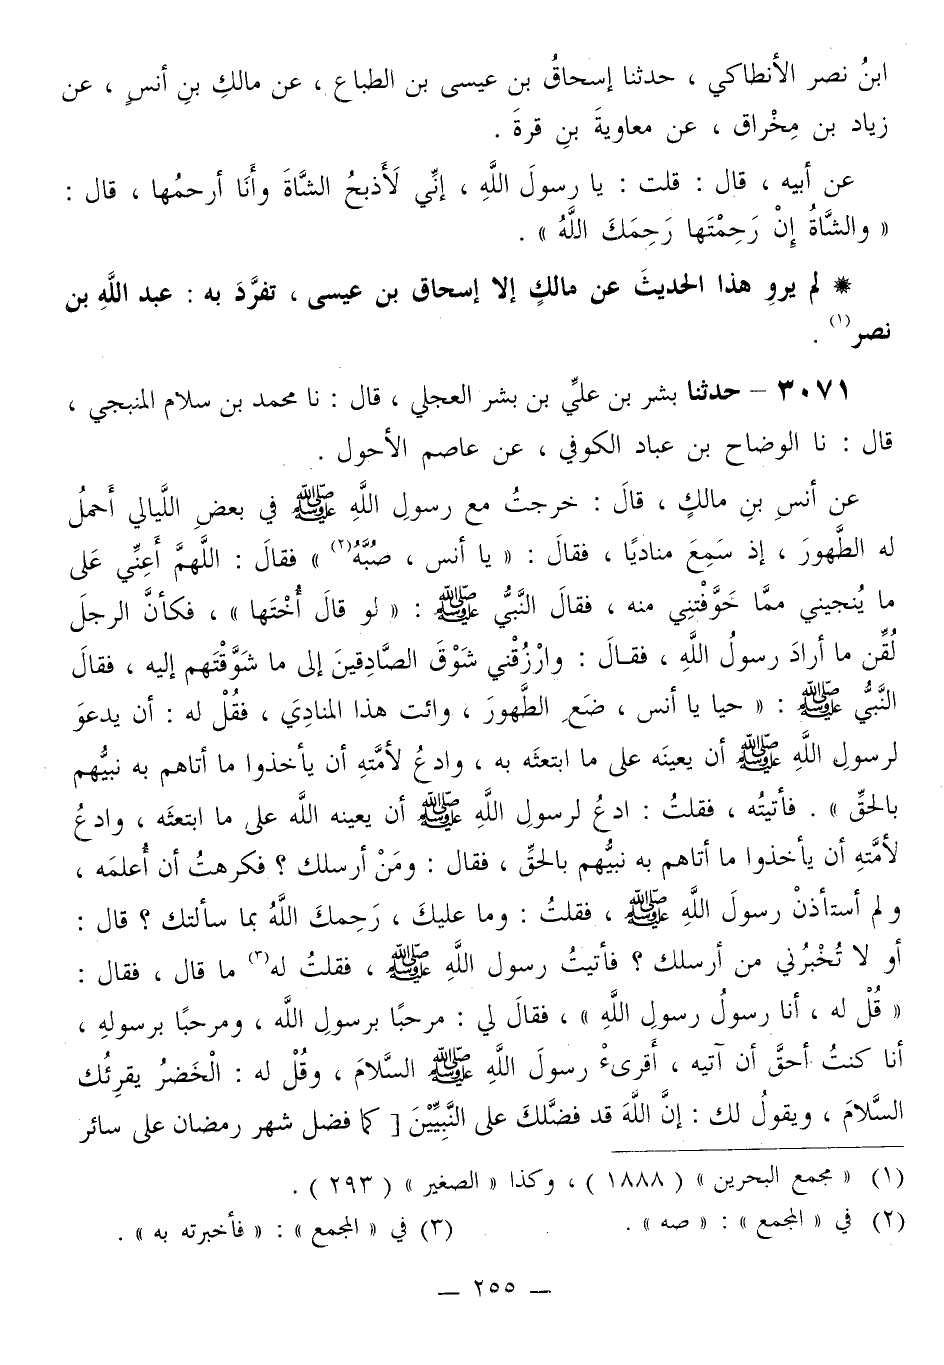 ابنُ نصر الأنطاكي ، حدثنا إسحاقُ بن عيسى بن الطباع ، عن مالكِ بنِ أنسٍ ، عن
زياد بن مِخْراق ، عن معاويةَ بنِ قرةَ .
عن أبيه ، قال : قلت : يا رسولَ اللَّهِ ، إنِّي لَأَذبحُ الشَّاةَ وأَنَا أرحمُها ، قال :
« والشَّاةُ إِنْ رَحِمْتَها رَحِمَكَ اللَّهُ » .
* لم يروِ هذا الحديثَ عن مالكٍ إلا إسحاق بن عيسى ، تفرَّدَ به : عبد اللَّهِ بن
نصر(١) .
٣٠٧١ – حدثنا بشر بن عليِّ بن بشر العجلي ، قال : نا محمد بن سلام المنبجي ،
قال : نا الوضاح بن عباد الكوفي ، عن عاصم الأحول .
عن أنسِ بنِ مالكٍ ، قالَ : خرجتُ مع رسولِ اللَّهِ ﷺ في بعضِ اللَّيالي أَحملُ
له الطَّهورَ ، إذ سَمِعَ مناديًا ، فقالَ : « يا أنس ، صُبَّهُ(٢) » فقالَ : اللَّهمَّ أَعِنِّي عَلى
ما يُنجيني ممَّا خَوَّفْتَنِي منه ، فقالَ النَّبيُّ ﷺ : « لو قالَ أُخْتَها » ، فكأنَّ الرجلَ
لُقِّن ما أرادَ رسولُ اللَّهِ ، فقـالَ : وارْزُقْني شَوْقَ الصَّادِقينَ إلى ما شَوَّقْتَهم إليه ، فقالَ
النَّبيُّ ﷺ : « حيا يا أنس ، ضَعِ الطَّهورَ ، وائت هذا المنادِيَ ، فقُلْ له : أن يدعوَ
لرسولِ اللَّهِ ﷺ أن يعينَه على ما ابتعثَه به ، وادعُ لأمَّتهِ أن يأخذوا ما أتاهم به نبيُّهم
بالحقِّ » . فأتيتُه ، فقلتُ : ادعُ لرسولِ اللَّهِ ﷺ أن يعينه اللَّه على ما ابتعثَه ، وادعُ
لأمَّتهِ أن يأخذوا ما أتاهم به نبيُّهم بالحقِّ ، فقال : ومَنْ أرسلك ؟ فكرهتُ أن أُعلمَه ،
ولم أستأذنْ رسولَ اللَّهِ ﷺ ، فقلتُ : وما عليكَ ، رَحِمكَ اللَّهُ بما سألتك ؟ قال :
أو لا تُخْبرُني من أرسلك ؟ فأتيتُ رسول اللَّهِ ﷺ ، فقلتُ له(٣) ما قال ، فقال :
« قُلْ له ، أنا رسولُ رسولِ اللَّهِ » ، فقالَ لي : مرحبًا برسولِ اللَّه ، ومرحبًا برسولهِ ،
أنا كنتُ أحقَّ أن آتيه ، أَقرىءْ رسولَ اللَّهِ ﷺ السَّلامَ ، وقُلْ له : الْخَضرُ يقرِئُك
السَّلامَ ، ويقولُ لك : إنَّ اللَّهَ قد فضَّلكَ على النَّبِيِّيْنَ [ كما فضل شهر رمضان على سائر
(١) « مجمع البحرين » ( ١٨٨٨ ) ، وكذا « الصغير » ( ٢٩٣ ) .
(٢) في « المجمع » : « صه » . (٣) في « المجمع » : « فأخبرته به » .
— ٢٥٥ —